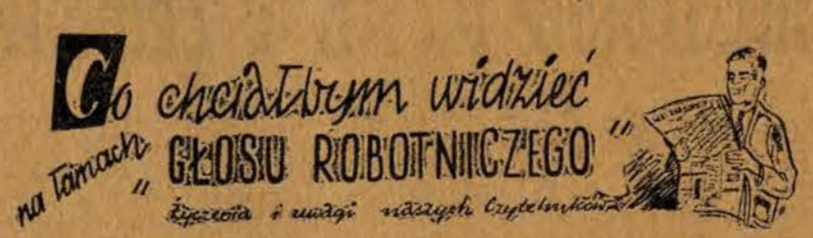 Co chciałbym widzieć
na łamach
„GŁOSU ROBOTNICZEGO”
Życzenia i uwagi naszych Czytelników